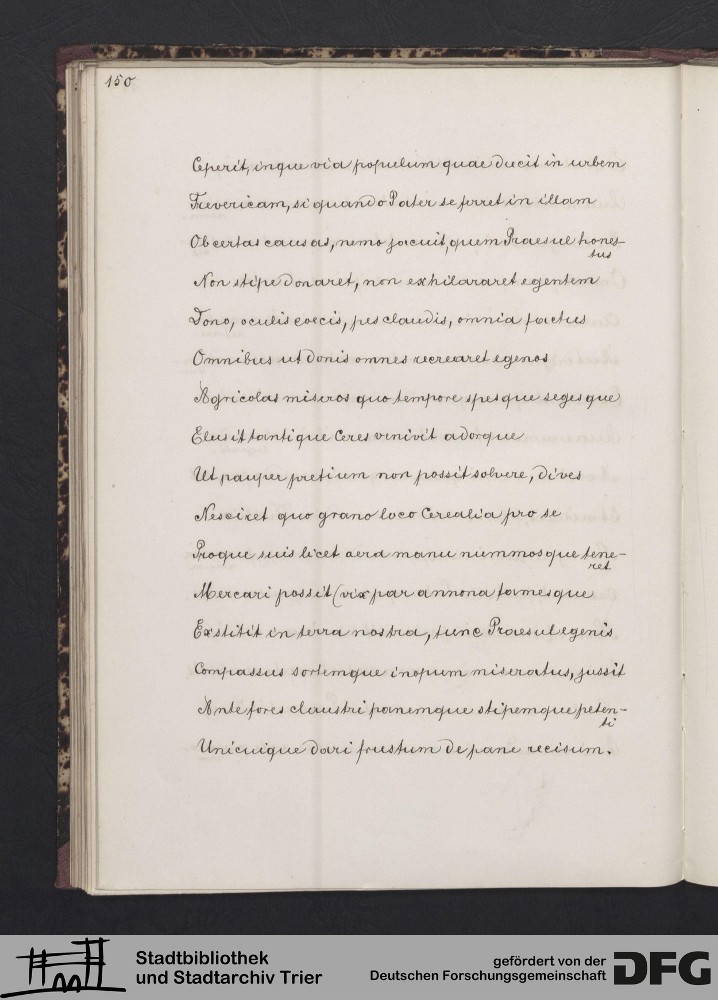 150
Ceperit, inque via populum quae ducit in urbem
Trevericam, si quando Pater se ferret in illam
Ob certas causas, nemo jacuit, quem Praesul hones-
tus
Non stipe donaret, non exhilararet egentem
Dono, oculis coecis, pes claudis, omnia factus
Omnibus ut donis omnes recrearet egenos
Agricolas miseros quo tempore spesque segesque
Elusit tantique Ceres venivit adorque
Ut pauper pretium non possit solvere, dives
Nesciret quo grano loco Cerealia pro se
Proque suis licet aera manu nummosque tene-
ret
Mercari possit (vix par annona famesque
Exstitit in terra nostra, tunc Praesul egenis
Compassus sortemque inopum miseratus, jussit
Ante fores claustri panemque stipemque peten-
ti
Unicuique dari frustum de pane recisum.
Stadtbibliothek
und Stadtarchiv Trier
gefördert von der
Deutschen Forschungsgemeinschaft
DFG